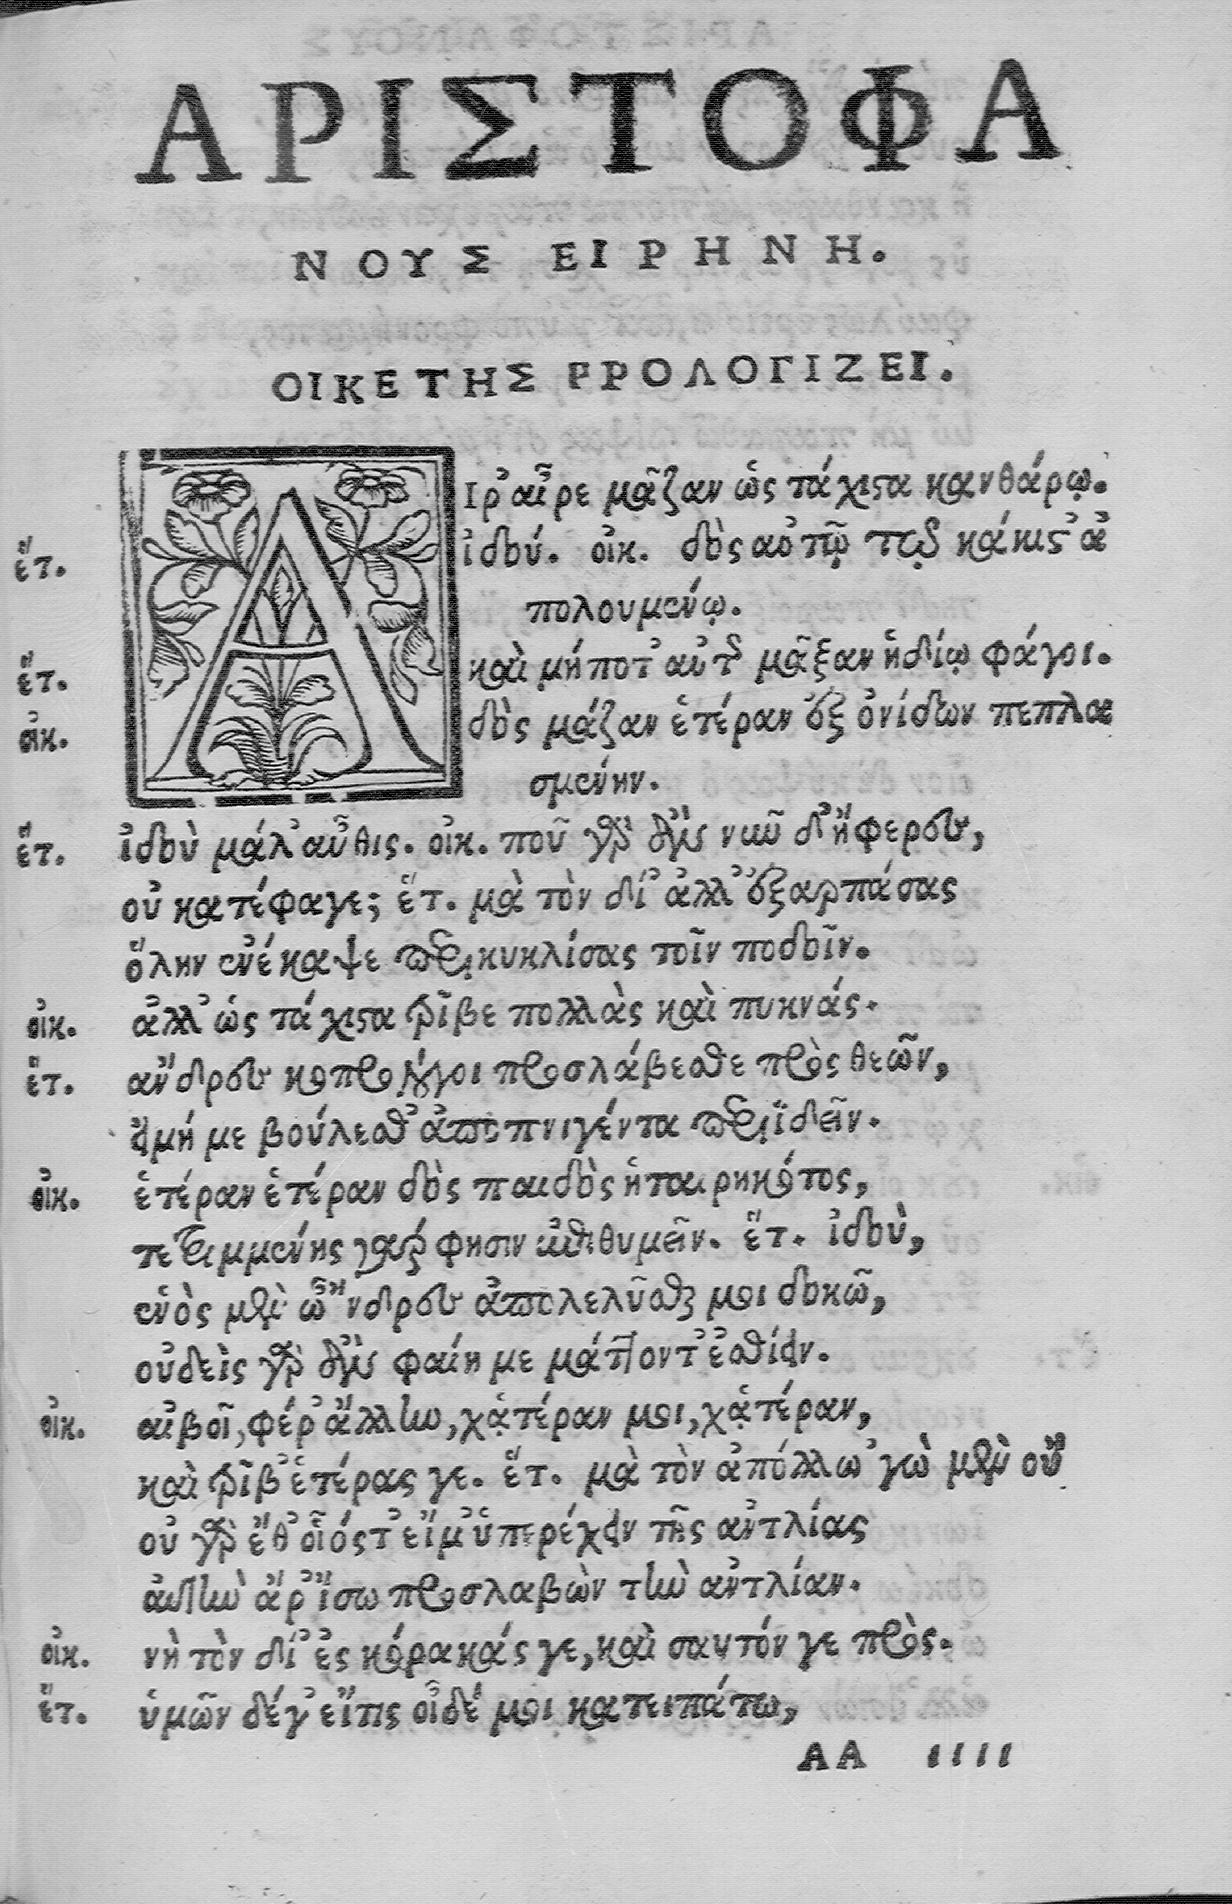 ΑΡΙΣΤΟΦΑ
ΝΟΥΣ ΕΙΡΗΝΗ.
ΟΙΚΕΤΗΣ ΡΡΟΛΟΓΙΖΕΙ.
ΑΙρ᾽ αἶρε μᾶζαν ὡς τάχιστα κανθάρῳ.
ἕτ. ἰδού. οἰκ. δὸς αὐτῷ τῷ κάκιστ᾽ ἀ
πολουμένῳ.
ἕτ. καὶ μήποτ᾽ αὐτῆς μᾶξαν ἡδίω φάγοι.
οἰκ. δὸς μάζαν ἑτέραν ἐξ ὀνίδων πεπλα
σμένην.
ἕτ. ἰδοὺ μάλ᾽ αὖθις. οἰκ. ποῦ γὰρ ἣν νῦν δὴ ᾔφερες,
οὐ κατέφαγε; ἕτ. μὰ τὸν δί᾽ ἀλλ᾽ ἐξαρπάσας
ὅλην ἐνέκαψε περικυκλίσας τοῖν ποδοῖν.
οἰκ. ἀλλ᾽ ὡς τάχιστα τρῖβε πολλὰς καὶ πυκνάς.
ἕτ. ἄνδρες κοπρολόγοι προσλάβεσθε πρὸς θεῶν,
εἰ μή με βούλεσθ᾽ ἀποπνιγέντα περιϊδεῖν.
οἰκ. ἑτέραν ἑτέραν δὸς παιδὸς ἡταιρηκότος,
τετριμμένης γάρ φησιν ἐπιθυμεῖν. ἕτ. ἰδοὺ,
ἑνὸς μὲν ὦ ῎νδρες ἀπολελῦσθαι μοι δοκῶ,
οὐδεὶς γὰρ ἂν φαίη με μάττοντ᾽ ἐσθίειν.
οἰκ. αἰβοῖ, φέρ᾽ ἄλλην, χἀτέραν μοι, χἀτέραν,
καὶ τρῖβ᾽ ἑτέρας γε. ἕτ. μὰ τὸν ἀπόλλω ᾽γὼ μὲν οὔ
οὐ γὰρ ἔθ᾽ οἷός τ᾽ εἴμ᾽ ὑπερέχειν τῆς ἀντλίας
αὐτὴν ἄρ᾽ οἴσω προσλαβὼν τὴν ἀντλίαν.
οἰκ. νὴ τὸν δί᾽ ἐς κόρακάς γε, καὶ σαυτόν γε πρὸς.
ἕτ. ὑμῶν δέ γ᾽ εἴ τις οἶδέ μοι κατειπάτω,
ΑΑ ιιιι